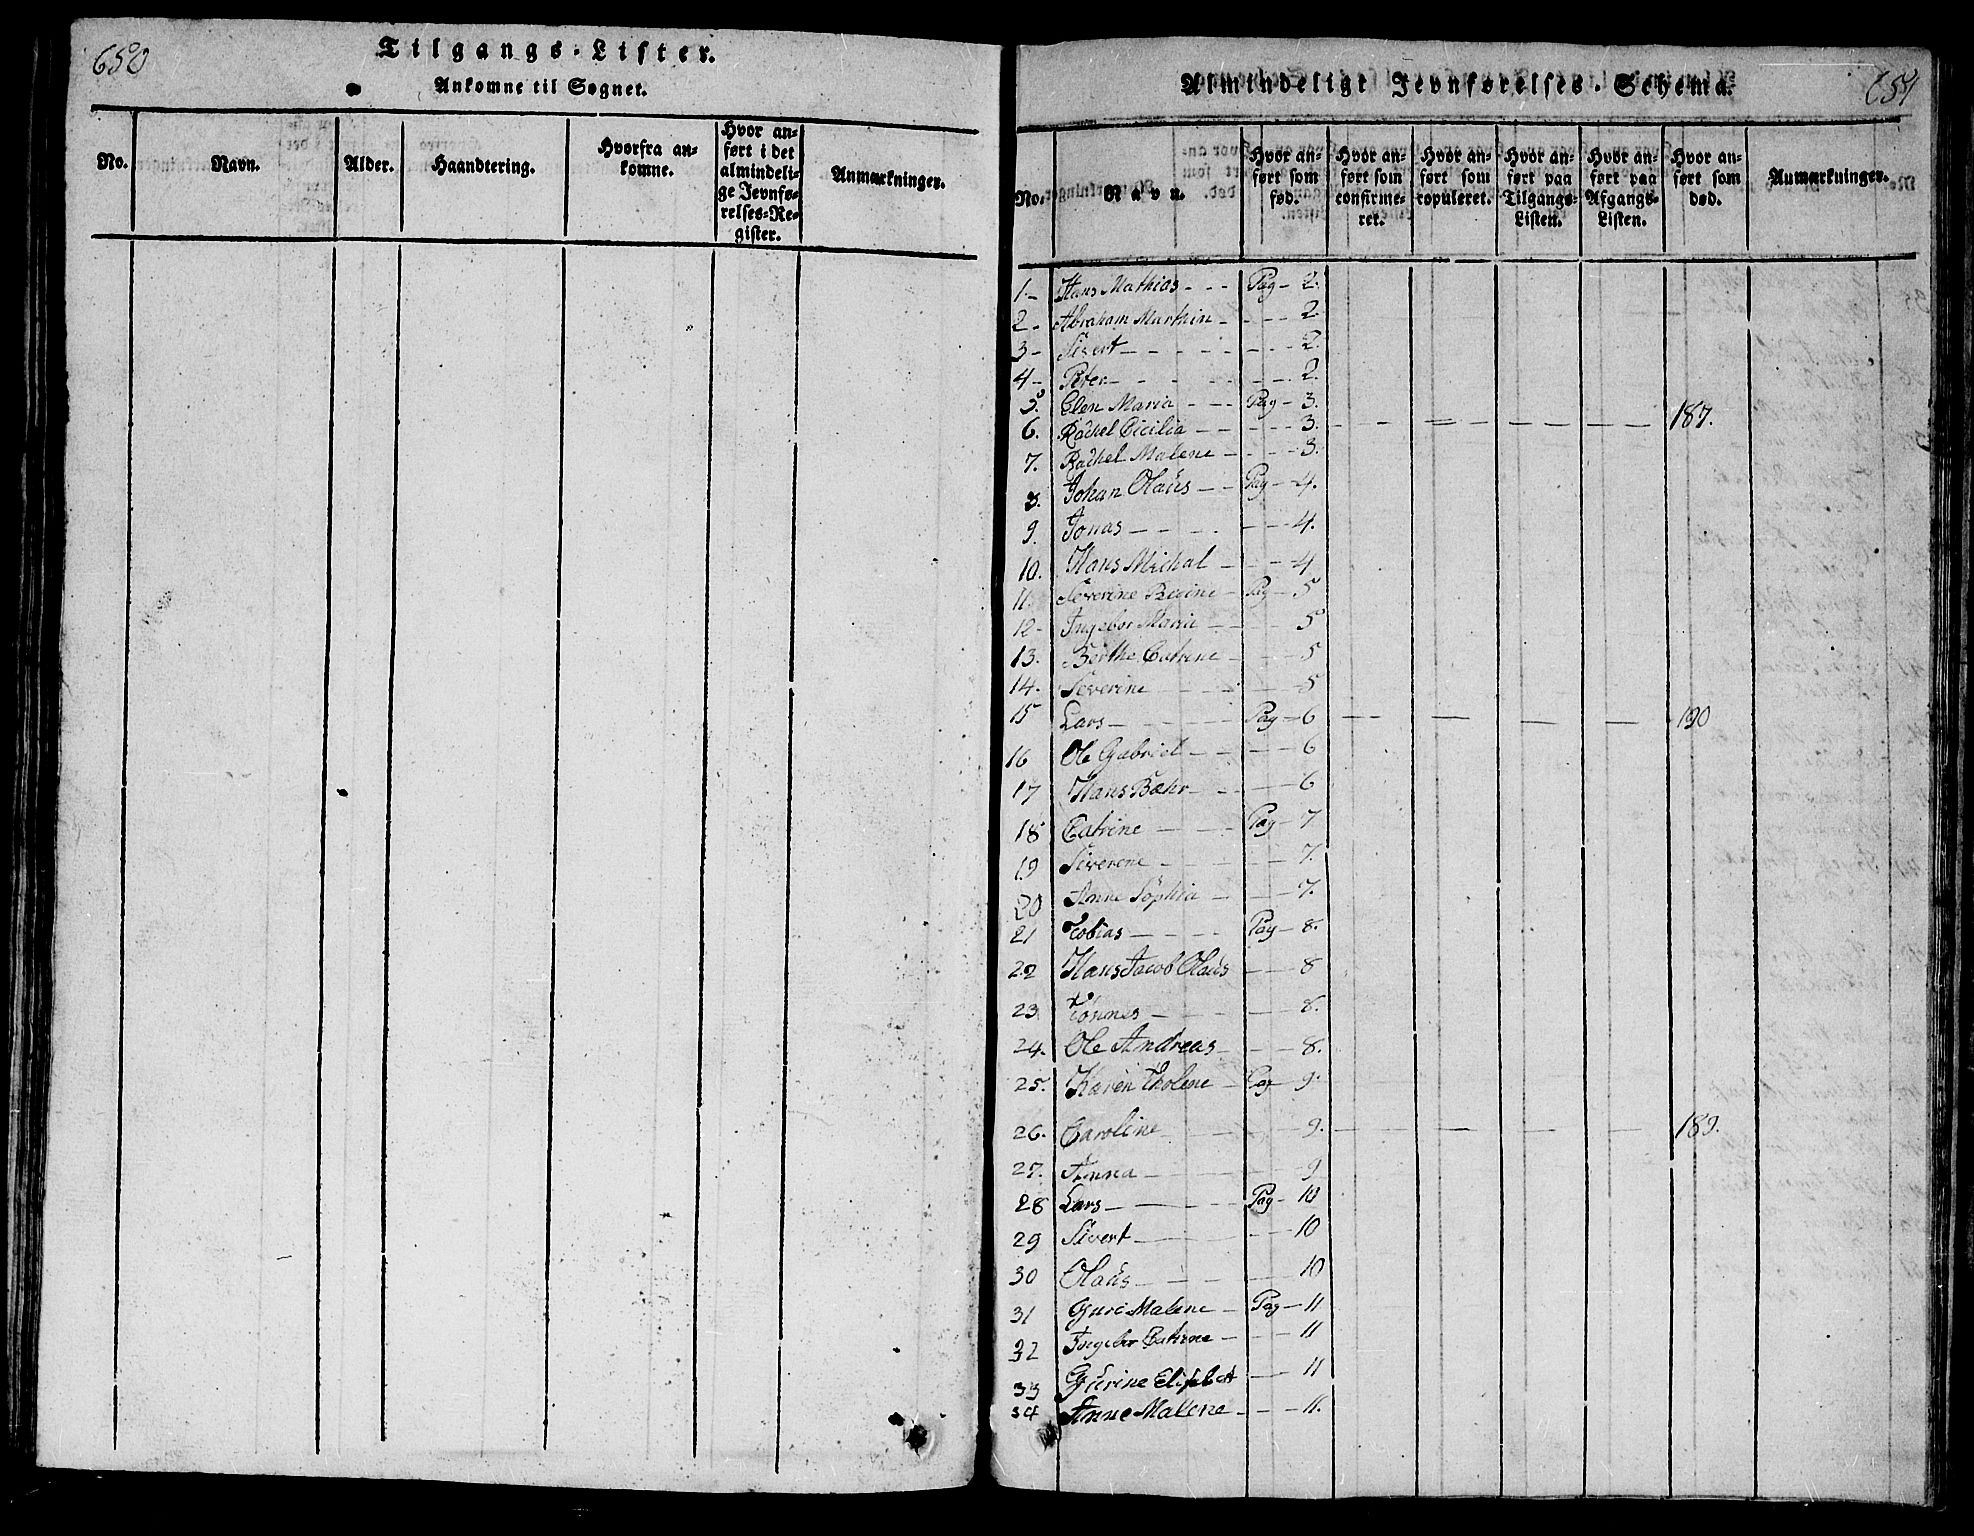 650
Tilgangs-Lister.
Ankomne til Sognet.
No. Navn. Alder. Haandtering. Hvorfra ankomne. Hvor anført i det almindelige Jevnførelses-Register. Anmærkninger.
651
Almindeligt Jevnførelses-Schema.
No. Navn. Hvor anført som fød. Hvor anført som confirmeret. Hvor anført som copuleret. Hvor anført paa Tilgangs-Listen. Hvor anført paa Afgangs-Listen. Hvor anført som død. Anmærkninger.
1. Hans Mathias Pag 2.
2. Abraham Marthin 2
3 Sivert 2.
4 Peter 2.
5. Elen Maria Pag 3.
6. Rachel Cicilia 3. 187.
7. Rachel Malene 3.
8. Johan Olaus Pag 4.
9. Jonas 4.
10. Hans Michal 4
11. Severine Pag 5
12 Ingebor Maria 5
13. Berthe Catrine 5
14. Severine 5
15 Lars Pag 6 190
16 Ole Gabriel 6
17 Hans Bæhr 6
18 Catrine Pag 7
19 Siverene 7.
20 Anne Sophia 7.
21 Tobias Pag 8.
22 Hans Jacob Olaus 8
23 Tønnes 8.
24. Ole Andreas 8.
25. Karen Tholene Pag 9.
26. Caroline 9. 189.
27. Anna 9
28 Lars Pag 10
29 Sivert 10
30 Olaus 10
31 Guri Malene Pag 11
32 Ingebor Catrine 11
33 Gurine Elisbet 11
34 Anne Malene 11.